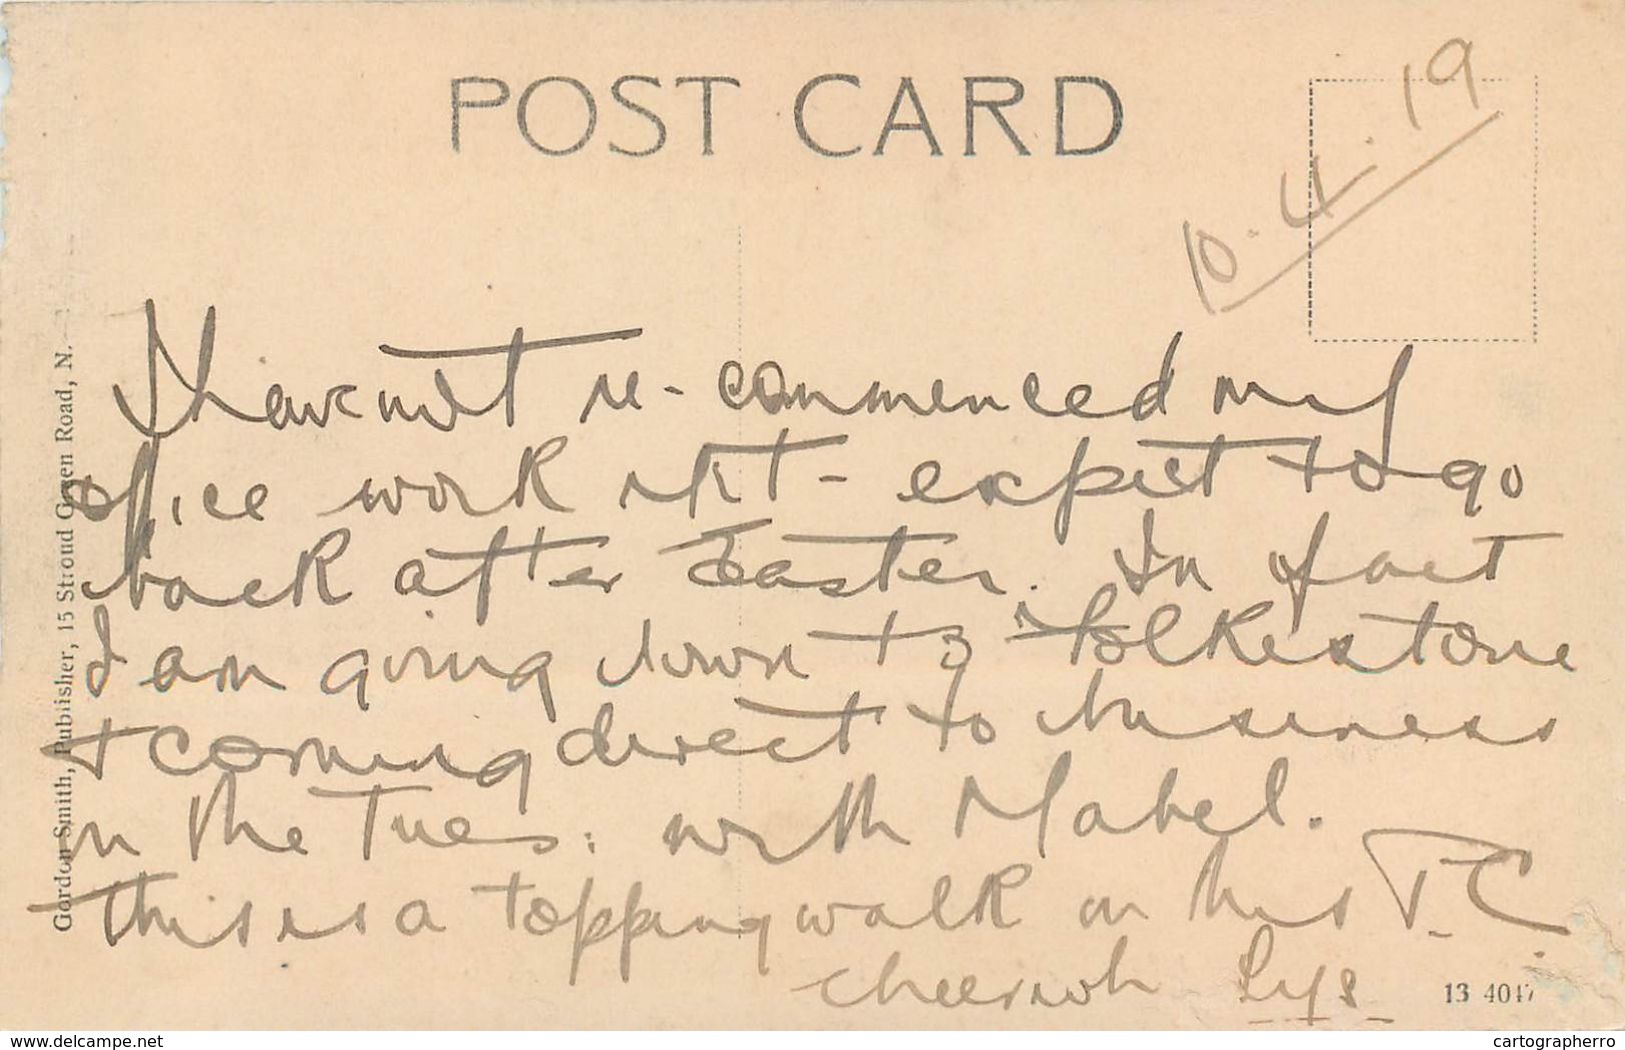 POST CARD
10.4.19
I have not re-commenced my
office work yet - expect to go
back after Easter. In fact
I am going down to Folkestone
+ coming direct to business
on the Tues: with Mabel.
This is a topping walk on this P.C.
cheerioh Syl
Gordon Smith, Publisher, 15 Stroud Green Road, N.
13 4017
www.delcampe.net
cartographerro